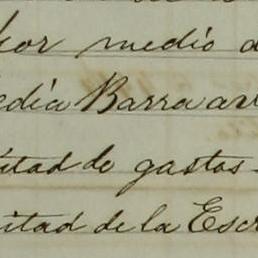 por medio d
edia Barra av
itad de gastos
itad de la Escr